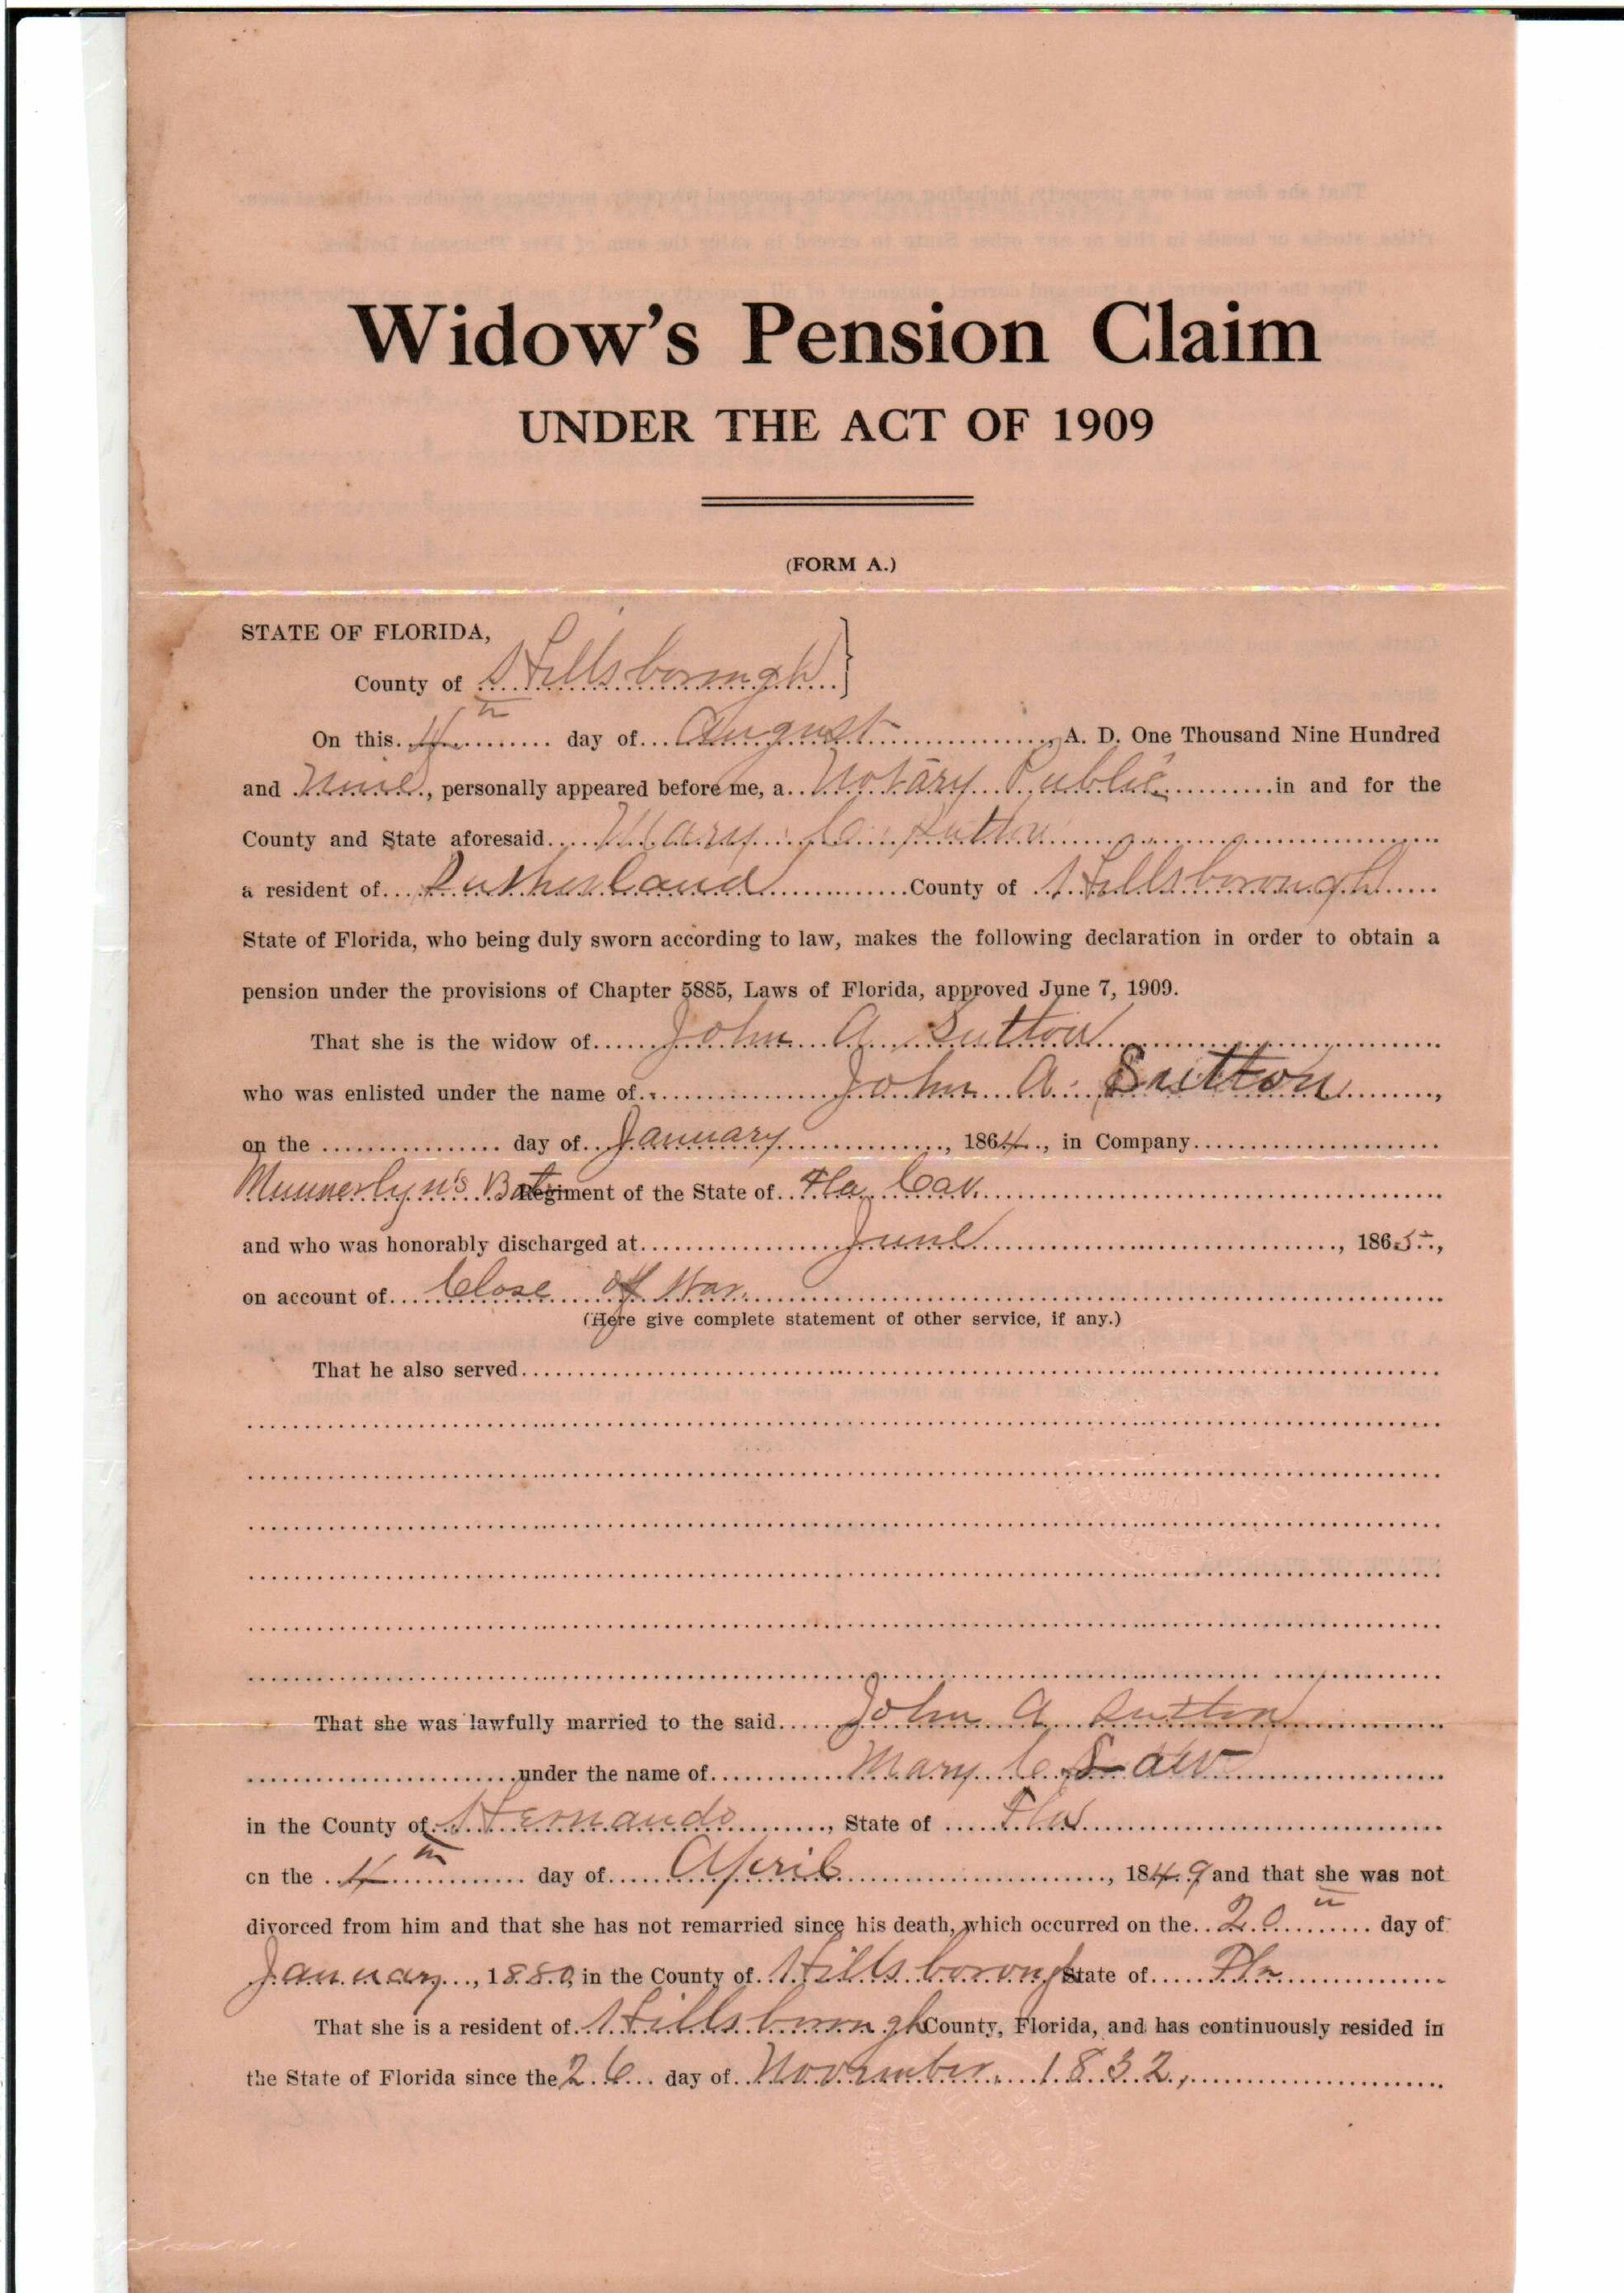 Widow's Pension Claim
UNDER THE ACT OF 1909
(FORM A.)
STATE OF FLORIDA,
County of Hillsborough }
On this 4th day of August, A. D. One Thousand Nine Hundred
and Nine, personally appeared before me, a Notary Public in and for the
County and State aforesaid Mary C. Sutton
a resident of Sutherland County of Hillsborough
State of Florida, who being duly sworn according to law, makes the following declaration in order to obtain a
pension under the provisions of Chapter 5885, Laws of Florida, approved June 7, 1909.
That she is the widow of John A. Sutton
who was enlisted under the name of John A. Sutton,
on the day of January, 1864, in Company
Munnerlyn's Bat Regiment of the State of Fla Cav.
and who was honorably discharged at June, 1865,
on account of Close of War
(Here give complete statement of other service, if any.)
That he also served
That she was lawfully married to the said John A Sutton
under the name of Mary C Law
in the County of Hernando, State of Fla
on the 4th day of April, 1849 and that she was not
divorced from him and that she has not remarried since his death, which occurred on the 20th day of
January, 1880, in the County of Hillsborough State of Fla
That she is a resident of Hillsborough County, Florida, and has continuously resided in
the State of Florida since the 26 day of November 1832,